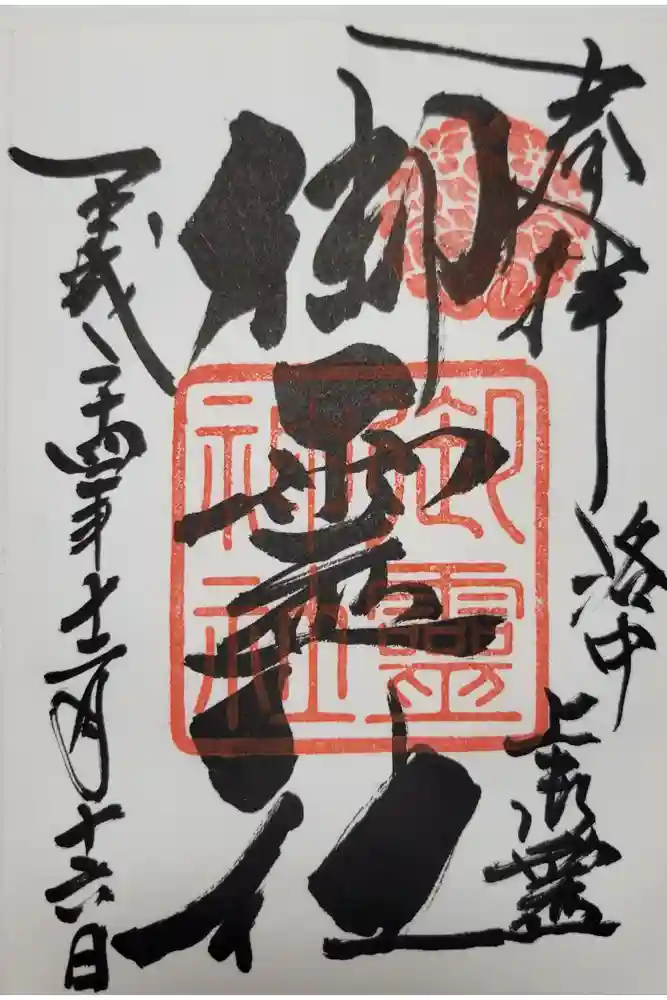 奉拝
洛中
上御霊
御霊社
御靈
神社
平成二十四年十二月十六日